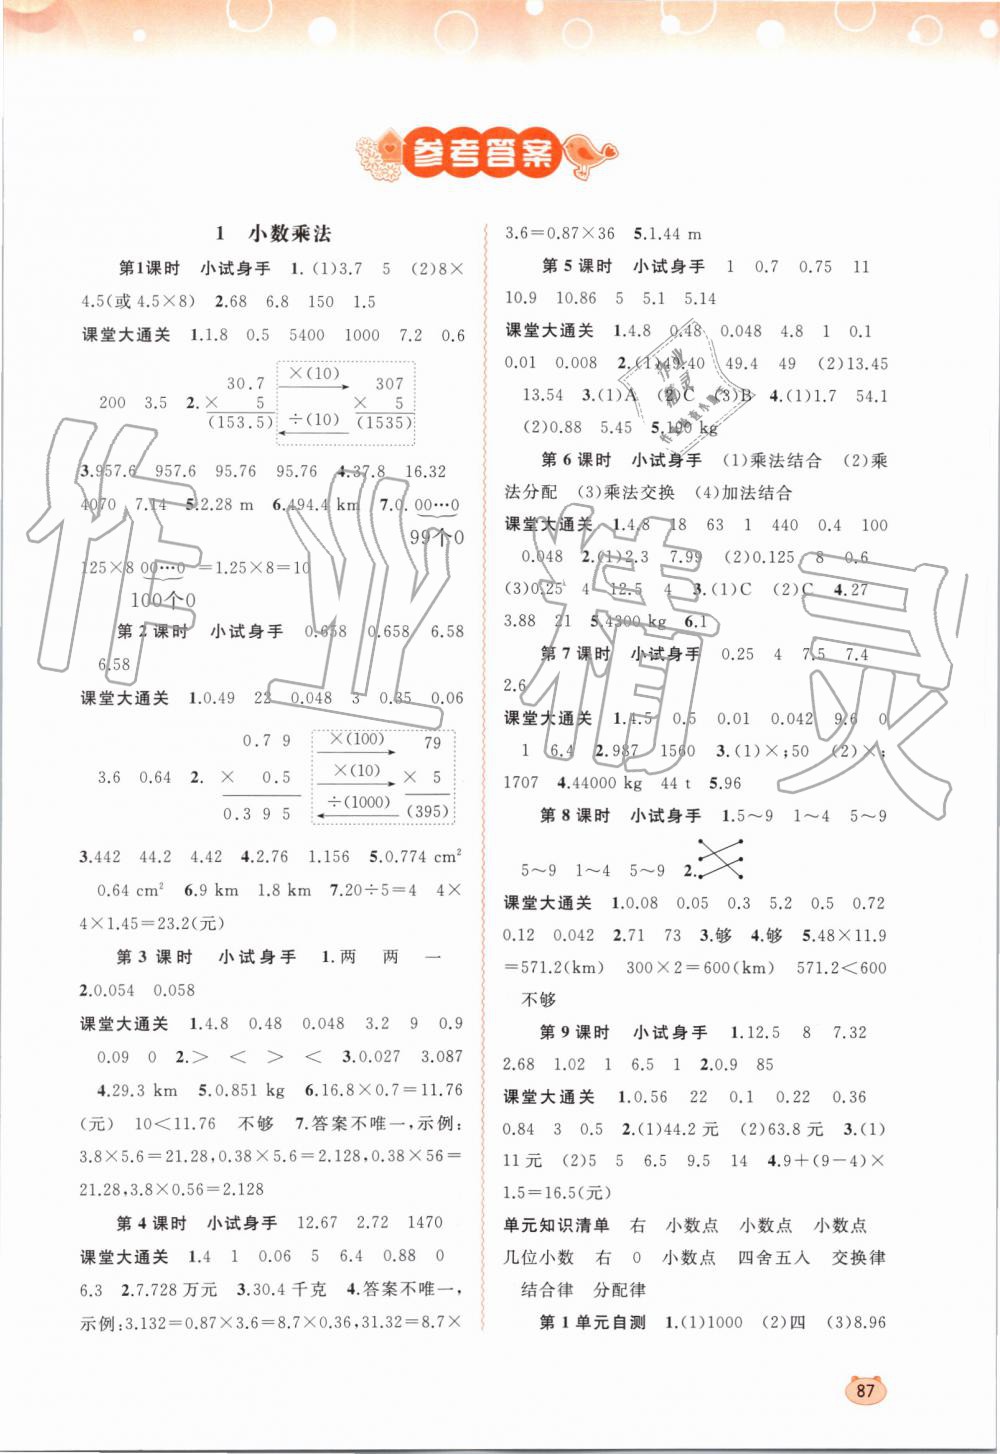 参考答案
1 小数乘法
第1课时 小试身手 1.(1)3.7 5 (2)8×
4.5(或4.5×8) 2.68 6.8 150 1.5
课堂大通关 1.1.8 0.5 5400 1000 7.2 0.6
200 3.5 2.
30.7 ×(10) 307
× 5 × 5
(153.5) ÷(10) (1535)
3.957.6 957.6 95.76 95.76 4.37.8 16.32
4070 7.14 5.2.28 m 6.494.4 km 7.0.00…0
99个0
125×800…0=1.25×8=10
100个0
第2课时 小试身手 0.658 0.658 6.58
6.58
课堂大通关 1.0.49 22 0.048 3 0.35 0.06
3.6 0.64 2.
0.79 ×(100) 79
× 0.5 ×(10) × 5
0.395 ÷(1000) (395)
3.442 44.2 4.42 4.2.76 1.156 5.0.774 cm²
0.64 cm² 6.9 km 1.8 km 7.20÷5=4 4×
4×1.45=23.2(元)
第3课时 小试身手 1.两 两 一
2.0.054 0.058
课堂大通关 1.4.8 0.48 0.048 3.2 9 0.9
0.09 0 2.> < > < 3.0.027 3.087
4.29.3 km 5.0.851 kg 6.16.8×0.7=11.76
(元) 10<11.76 不够 7.答案不唯一,示例:
3.8×5.6=21.28,0.38×5.6=2.128,0.38×56=
21.28,3.8×0.56=2.128
第4课时 小试身手 12.67 2.72 1470
课堂大通关 1.4 1 0.06 5 6.4 0.88 0
6.3 2.7.728万元 3.30.4千克 4.答案不唯一,
示例:3.132=0.87×3.6=8.7×0.36,31.32=8.7×
3.6=0.87×36 5.1.44 m
第5课时 小试身手 1 0.7 0.75 11
10.9 10.86 5 5.1 5.14
课堂大通关 1.4.8 0.48 0.048 4.8 1 0.1
0.01 0.008 2.(1)49.40 49.4 49 (2)13.45
13.54 3.(1)A (2)C (3)B 4.(1)1.7 54.1
(2)0.88 5.45 5.190 kg
第6课时 小试身手 (1)乘法结合 (2)乘
法分配 (3)乘法交换 (4)加法结合
课堂大通关 1.4.8 18 63 1 440 0.4 100
0.048 2.(1)2.3 7.99 (2)0.125 8 0.6
(3)0.25 4 12.5 4 3.(1)C (2)C 4.27
3.88 21 5.4300 kg 6.1
第7课时 小试身手 0.25 4 7.5 7.4
2.6
课堂大通关 1.4.5 0.5 0.01 0.042 9.6 0
1 6.4 2.987 1560 3.(1)×;50 (2)×;
1707 4.44000 kg 44 t 5.96
第8课时 小试身手 1.5～9 1～4 5～9
5～9 1～4 5～9 2.
课堂大通关 1.0.08 0.05 0.3 5.2 0.5 0.72
0.12 0.042 2.71 73 3.够 4.够 5.48×11.9
=571.2(km) 300×2=600(km) 571.2<600
不够
第9课时 小试身手 1.12.5 8 7.32
2.68 1.02 1 6.5 1 2.0.9 85
课堂大通关 1.0.56 22 0.1 0.22 0.36
0.84 3 0.5 2.(1)44.2元 (2)63.8元 3.(1)
11元 (2)5 5 6.5 9.5 14 4.9+(9-4)×
1.5=16.5(元)
单元知识清单 右 小数点 小数点 小数点
几位小数 右 0 小数点 四舍五入 交换律
结合律 分配律
第1单元自测 1.(1)1000 (2)四 (3)8.96
87
作业精灵